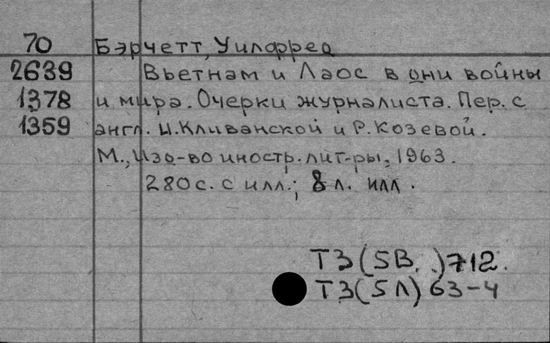 70 Бэрчетт, Уилфред
2639 Вьетнам и Лаос в дни войны
1378 и мира. Очерки журналиста. Пер. с
1359 англ. И. Кливанской и Р. Козевой.
М., Изд-во иностр. лит-ры, 1963.
280 с. с илл.; 8 л. илл.
Т3(5В. )712.
Т3(5Л) 63-4